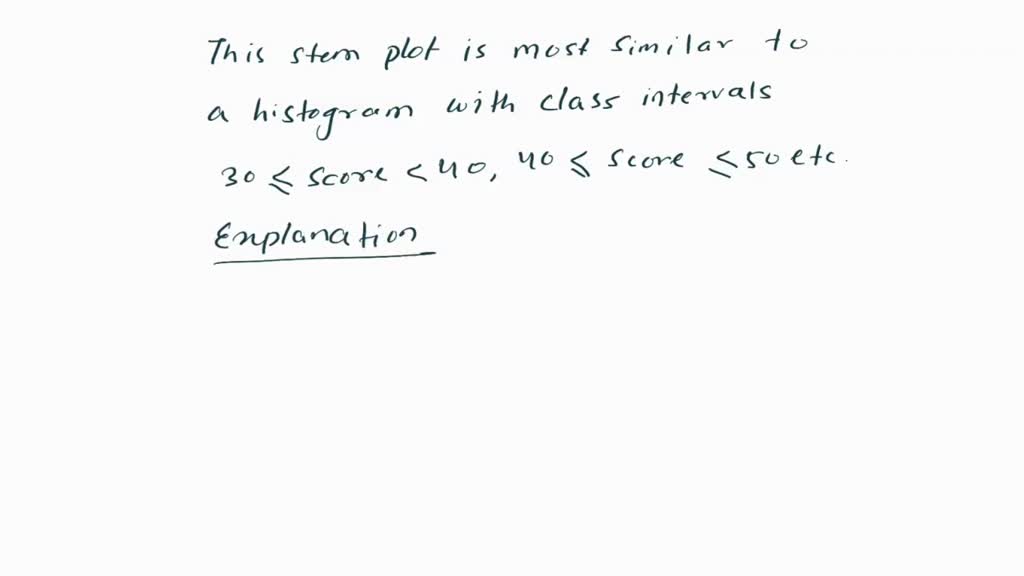 This stem plot is most similar to
a histogram with class intervals
30 ≤ score < 40, 40 ≤ score ≤ 50 etc.
Explanation